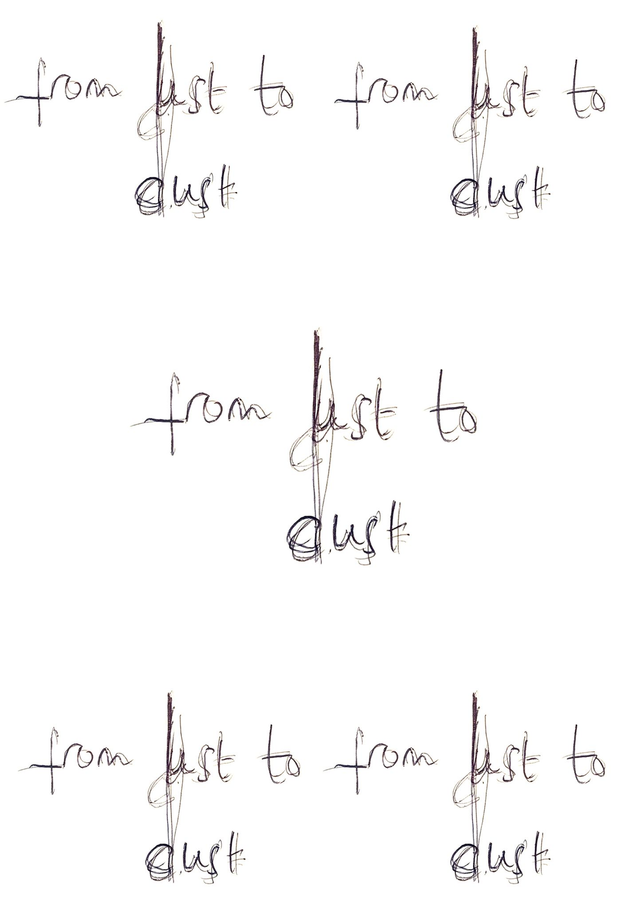 from lust to
dust
from lust to
dust
from lust to
dust
from lust to
dust
from lust to
dust